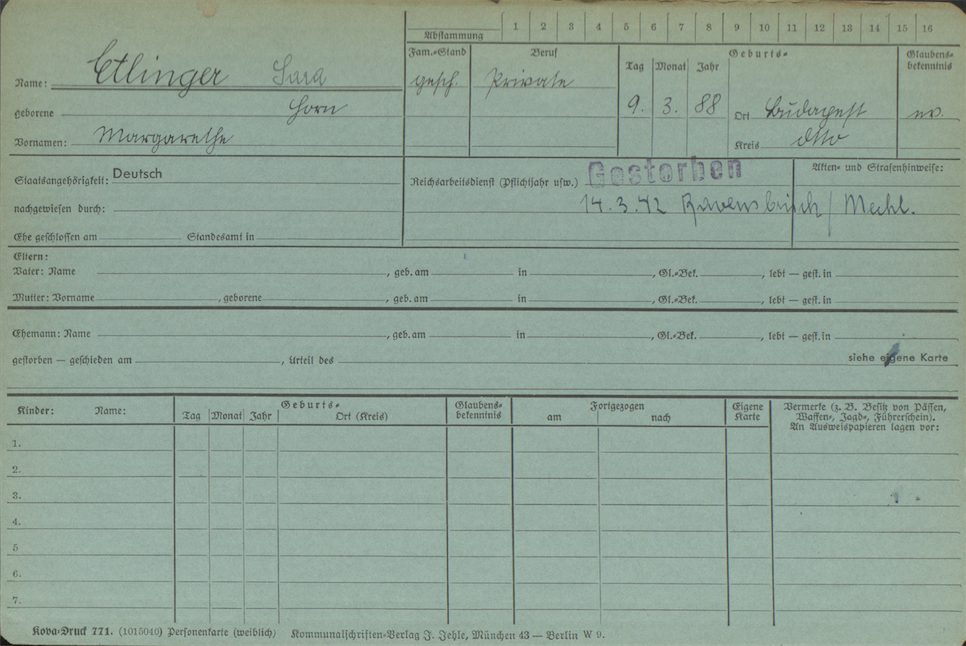 Abstammung 1 2 3 4 5 6 7 8 9 10 11 12 13 14 15 16
Name: Etlinger Sara
geborene Horn
Vornamen: Margarethe
Fam.-Stand Beruf Geburts- Glaubens-
bekenntnis
Tag Monat Jahr
gesch. Private 9. 3. 88 Ort Budapest
Kreis dtto
Staatsangehörigkeit: Deutsch
nachgewiesen durch:
Ehe geschlossen am Standesamt in
Reichsarbeitsdienst (Pflichtjahr usw.) Gestorben
14.3.42 Ravensbrück / Meckl.
Akten- und Strafenhinweise:
Eltern:
Vater: Name , geb. am in , Gl.-Bek. , lebt — gest. in
Mutter: Vorname , geborene , geb. am in , Gl.-Bek. , lebt — gest. in
Ehemann: Name , geb. am in , Gl.-Bek. , lebt — gest. in
gestorben — geschieden am , Urteil des siehe eigene Karte
Kinder: Name: Geburts- Glaubens-
bekenntnis Fortgezogen Eigene
Karte Vermerke (z. B. Besitz von Pässen,
Waffen-, Jagd-, Führerschein).
An Ausweispapieren lagen vor:
Tag Monat Jahr Ort (Kreis) am nach
1.
2.
3.
4.
5
6.
7.
Kova-Druck 771. (1015040) Personenkarte (weiblich) Kommunalschriften-Verlag J. Jehle, München 43 — Berlin W 9.